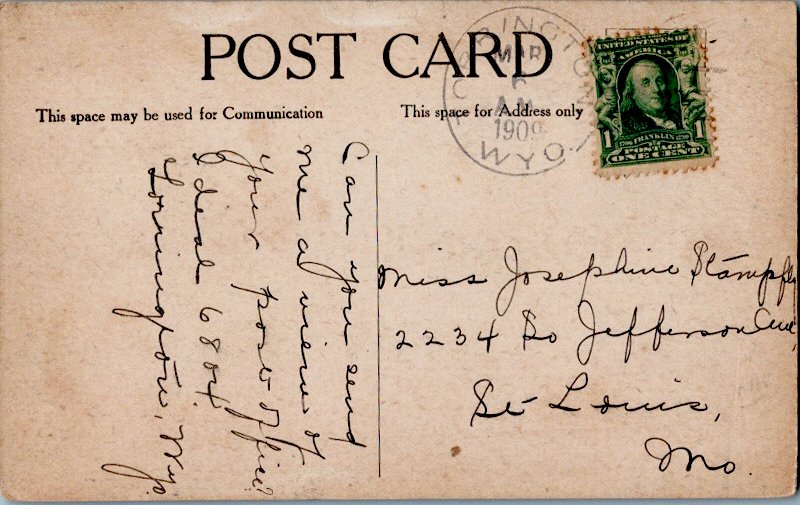 POST CARD
This space may be used for Communication
This space for Address only
INGTON
MAR
AM
1909
WYO.
UNITED STATES OF
AMERICA
1 FRANKLIN 1
POSTAGE
ONE CENT
Can you send
me a view of
your post office?
Ideal 6804
Torrington, Wyo.
Miss Josephine
2234 So Jefferson Ave,
St Louis,
Mo.